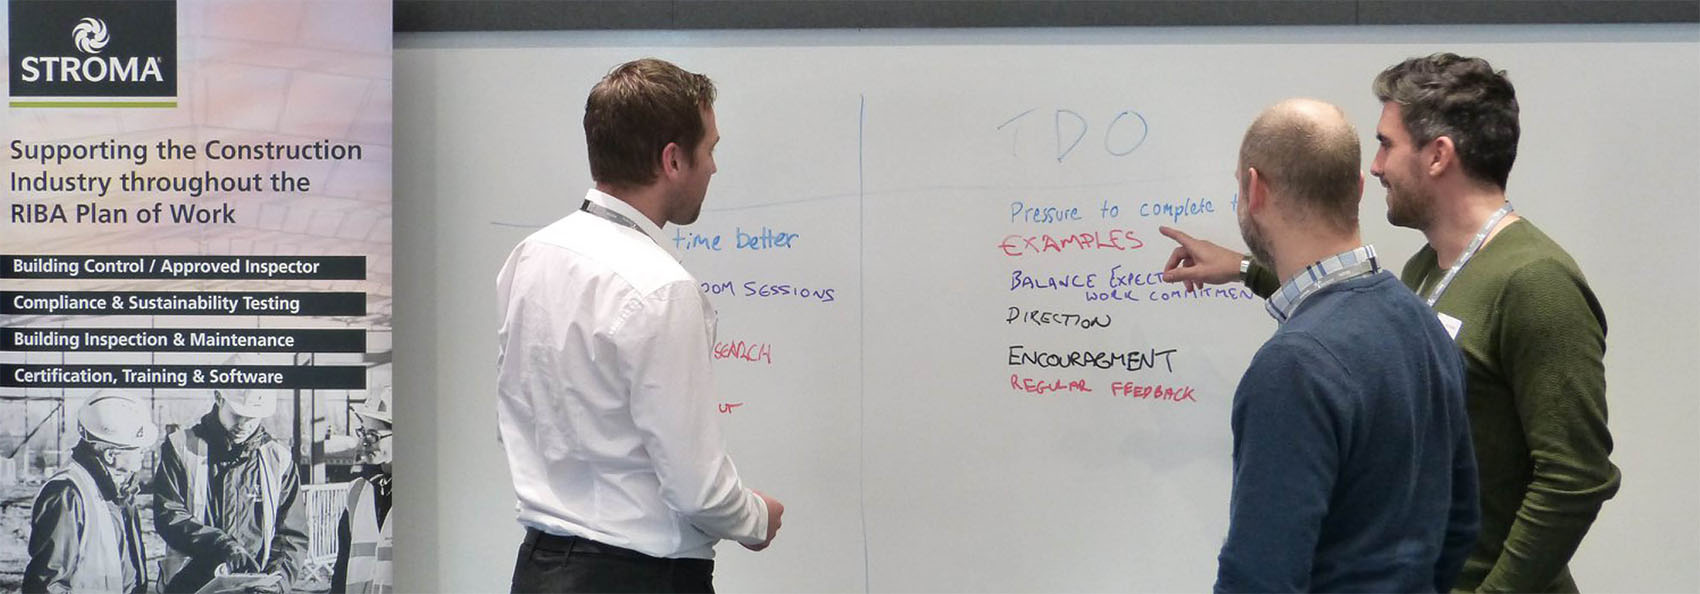 STROMA
Supporting the Construction
Industry throughout the
RIBA Plan of Work
Building Control / Approved Inspector
Compliance & Sustainability Testing
Building Inspection & Maintenance
Certification, Training & Software
time better
SESSIONS
TDO
Pressure to complete
EXAMPLES
BALANCE
WORK
DIRECTION
ENCOURAGMENT
REGULAR FEEDBACK